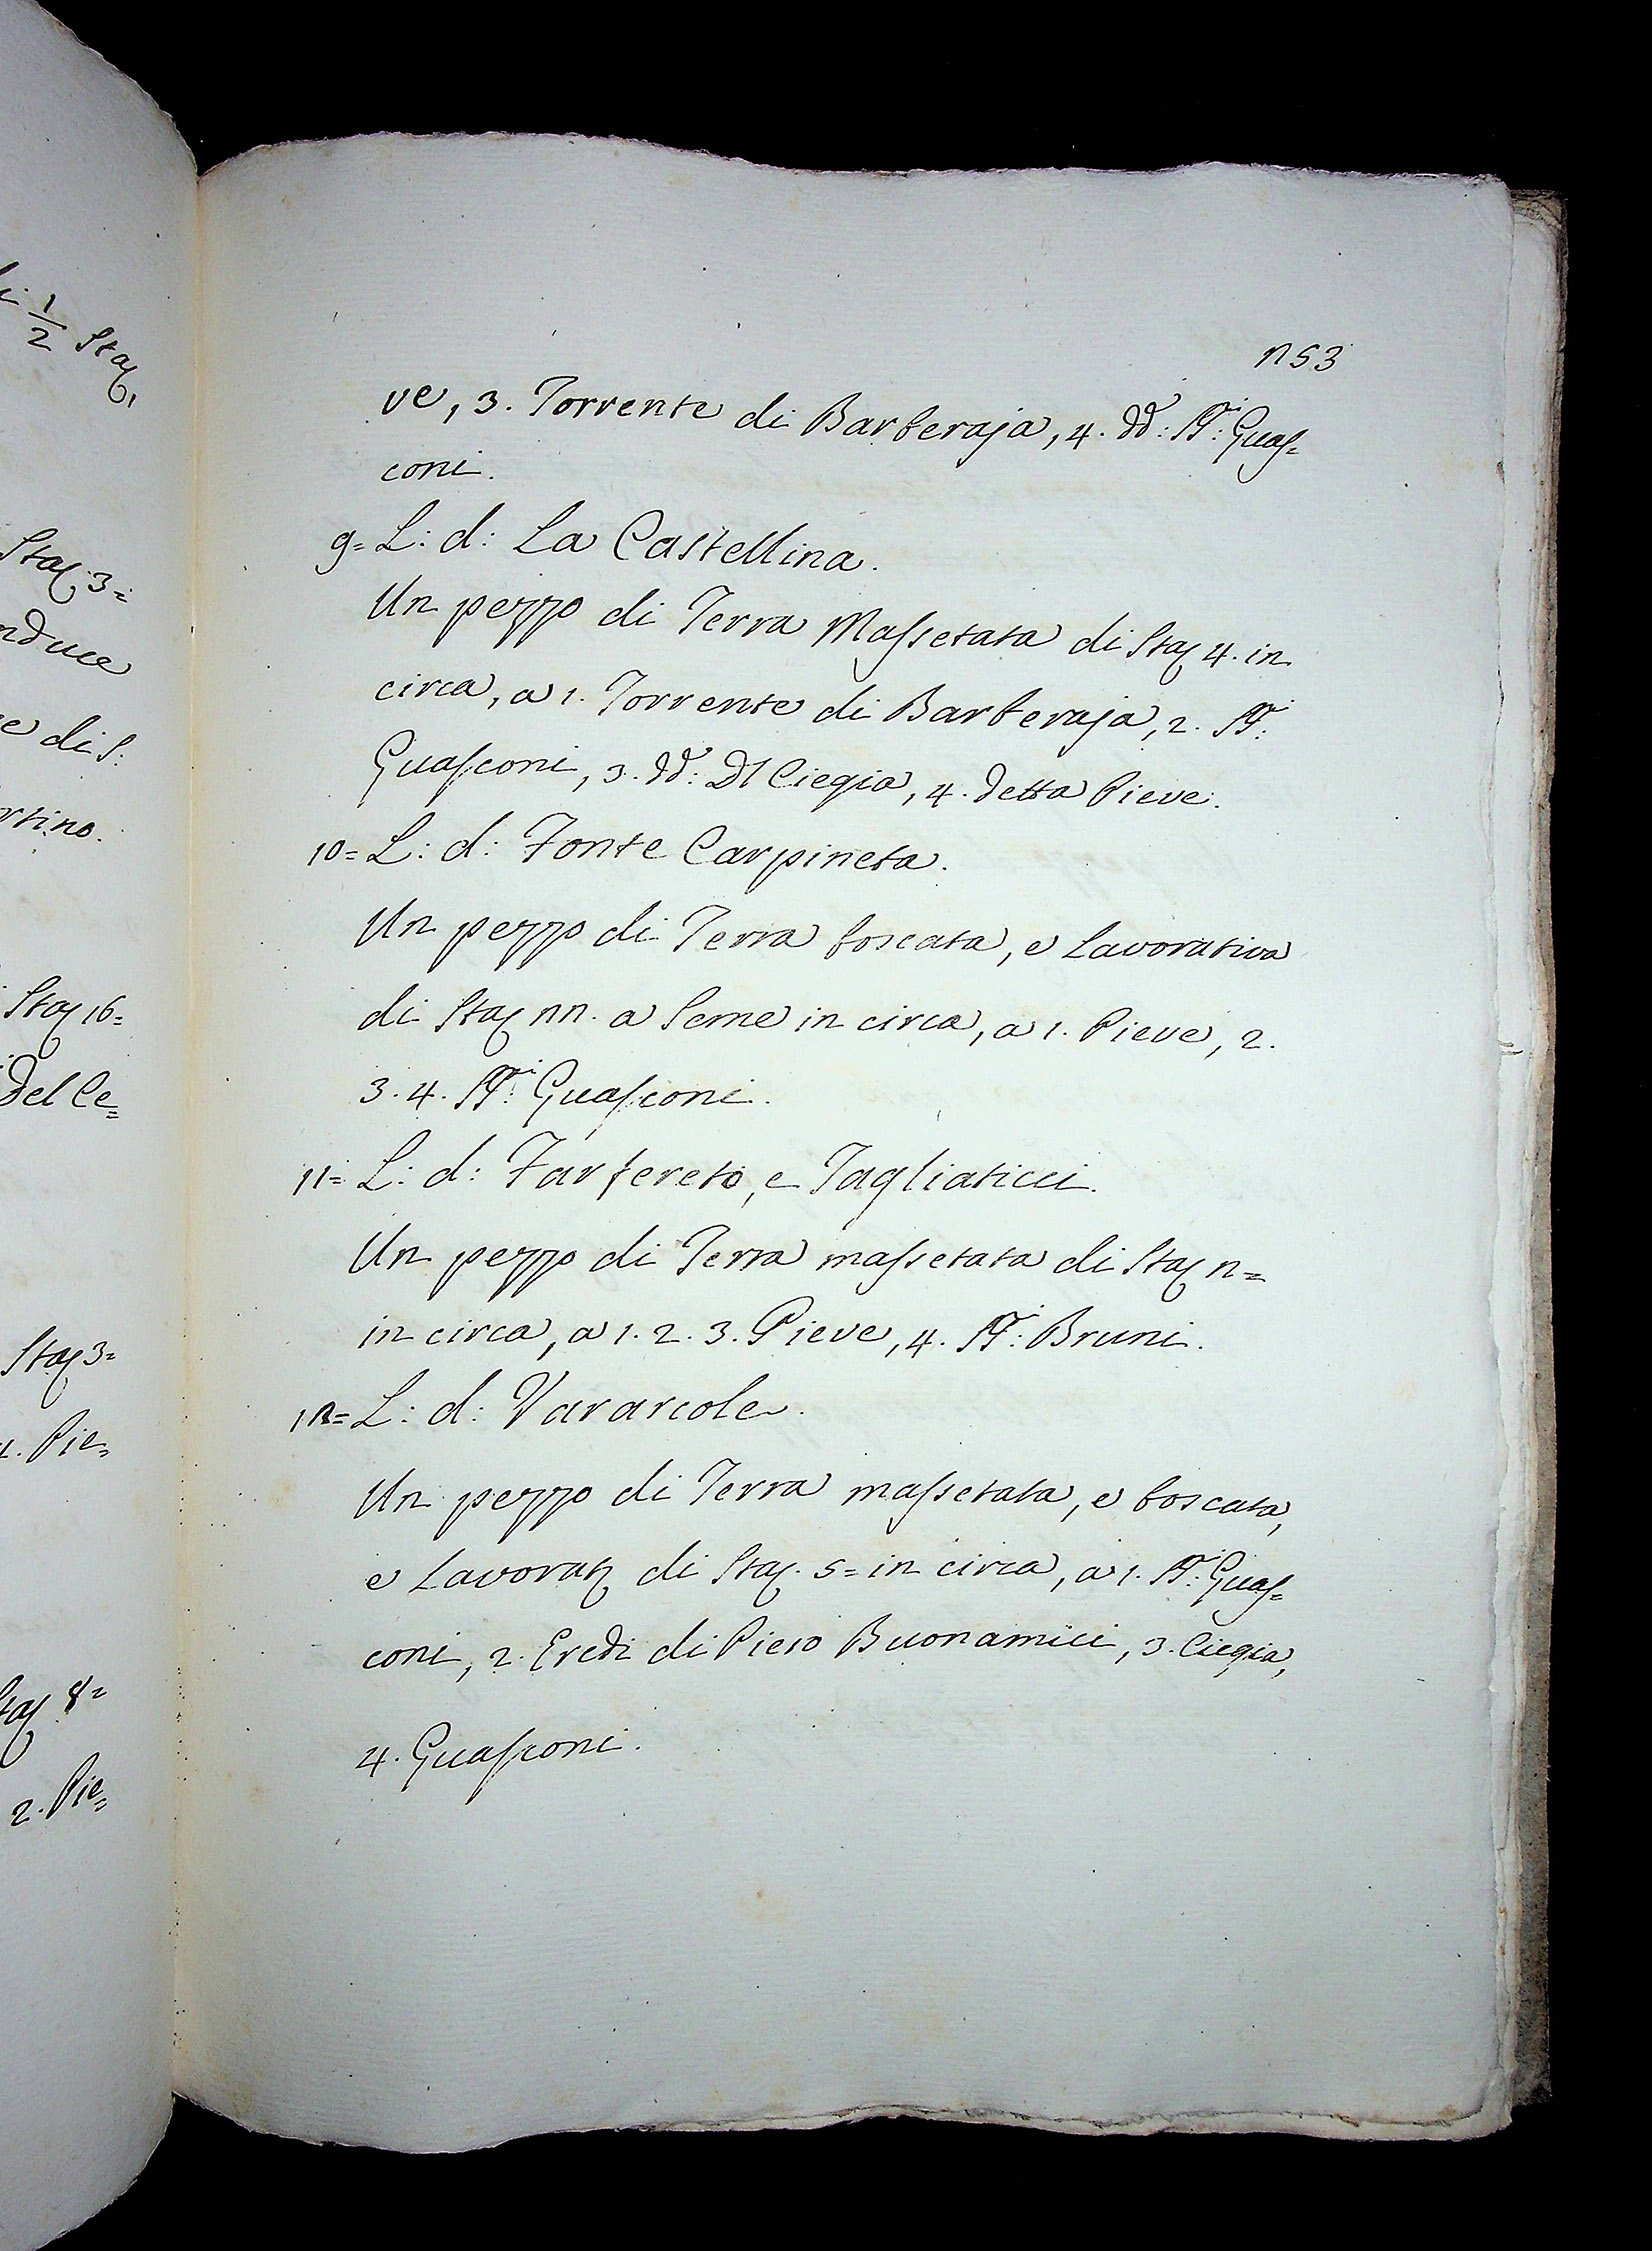 i 1/2 Staj
Staj 3=
nduce
e di S:
rtino.
Staj 16=
Del Ce=
Staj 3=
4. Pie=
Staj 8=
2. Pie=
253
ve, 3. Torrente di Barberaja, 4. dd: SS:ri Guas=
coni.
9= L: d: La Castellina.
Un pezzo di Terra Massetata di Staj 4. in
circa, a 1. Torrente di Barberaja, 2. SS:ri
Guasconi, 3. dd: Ciegia, 4. detta Pieve.
10= L: d: Fonte Carpineta.
Un pezzo di Terra boscata, e Lavorativa
di Staj 22. a Seme in circa, a 1. Pieve, 2.
3. 4. SS:ri Guasconi.
11= L: d: Farfereto, e Tagliaticci.
Un pezzo di Terra massetata di Staj 2=
in circa, a 1. 2. 3. Pieve, 4. SS:ri Bruni.
12= L: d: Vararcole.
Un pezzo di Terra massetata, e boscata,
e Lavorat di Staj. 5= in circa, a 1. SS:ri Guas=
coni, 2. Eredi di Piero Buonamici, 3. Ciegia,
4. Guasconi.